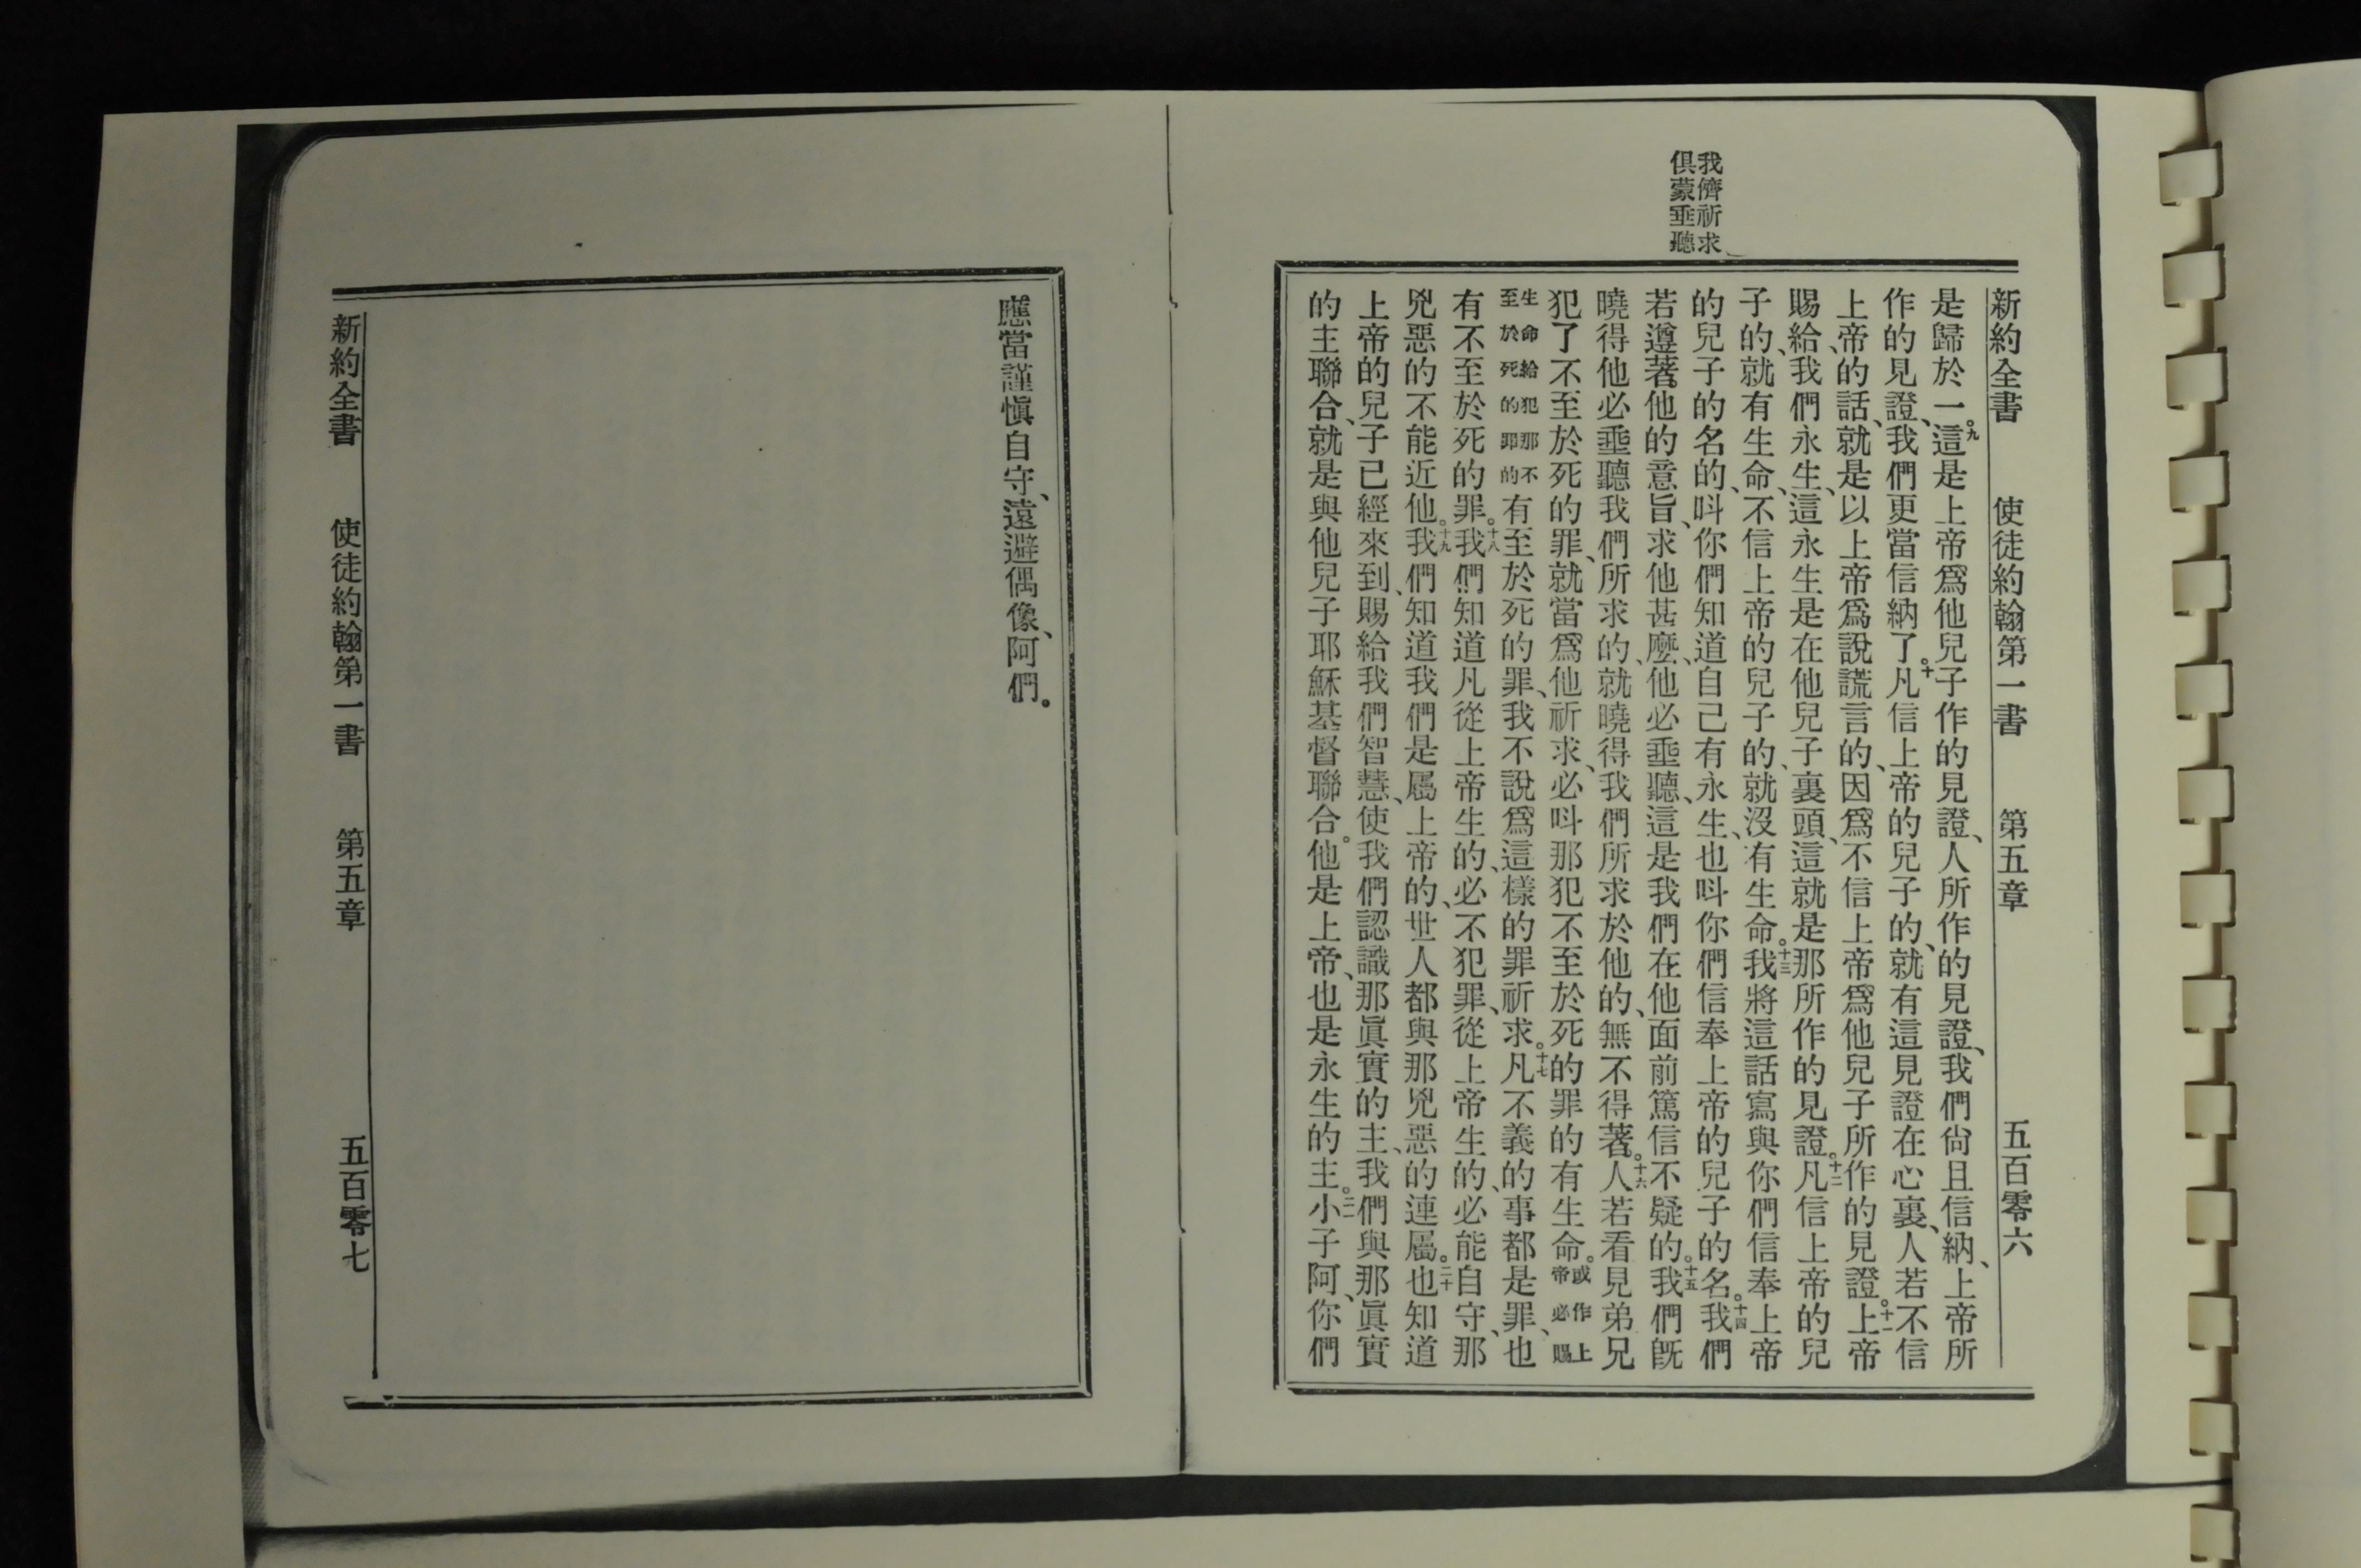 我儕祈求
俱蒙垂聽
新約全書 使徒約翰第一書 第五章 五百零六
是歸於一。九這是上帝爲他兒子作的見證、人所作的見證、我們尙且信納、上帝所
作的見證、我們更當信納了。十凡信上帝的兒子的、就有這見證在心裏、人若不信
上帝的話、就是以上帝爲說謊言的、因爲不信上帝爲他兒子所作的見證。十一上帝
賜給我們永生、這永生是在他兒子裏頭、這就是那所作的見證。十二凡信上帝的兒
子的、就有生命、不信上帝的兒子的、就沒有生命。十三我將這話寫與你們信奉上帝
的兒子的名的、呌你們知道自己有永生、也呌你們信奉上帝的兒子的名。十四我們
若遵著他的意旨、求他甚麼、他必垂聽、這是我們在他面前篤信不疑的。十五我們旣
曉得他必垂聽我們所求的、就曉得我們所求於他的、無不得著。十六人若看見弟兄
犯了不至於死的罪、就當爲他祈求、必呌那犯不至於死的罪的有生命。或作上帝必賜
生命給犯那不至於死的罪的有至於死的罪、我不說爲這樣的罪祈求。十七凡不義的事都是罪、也
有不至於死的罪。十八我們知道凡從上帝生的、必不犯罪、從上帝生的、必能自守、那
兇惡的不能近他。十九我們知道我們是屬上帝的、世人都與那兇惡的連屬。二十也知道
上帝的兒子已經來到、賜給我們智慧、使我們認識那眞實的主、我們與那眞實
的主聯合、就是與他兒子耶穌基督聯合。他是上帝、也是永生的主。二一小子阿、你們
應當謹愼自守、遠避偶像、阿們。
新約全書 使徒約翰第一書 第五章 五百零七